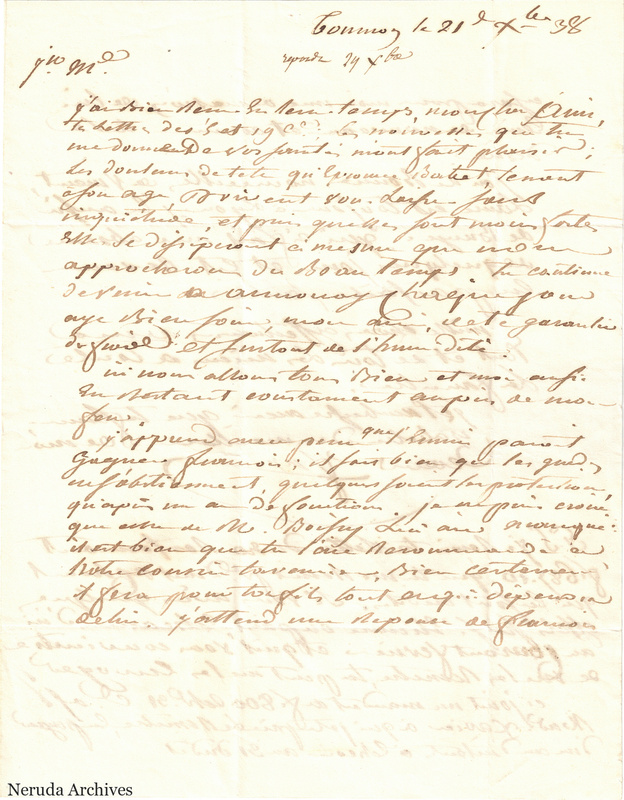 Tournon le 21 d Xbre 38
repondu 29 Xbre
Md.
j'ai Bien Reçu En Son temps, mon cher Ami,
ta Lettre des 5 et 19 Ct, les nouvelles que tu
me donne De vos santés m'ont fait plaisir;
Les Douleurs de tete qu'Eprouve
a son age, Doivent vous Laisser sans
inquiétude, et puis qu'elles sont moins fortes
Elle Se dissiperont a mesure que nous
approcherons du Beau temps. tu continue
De venir a annonay chaque jour
aye Bien Soin, mon ami, de te garantir
Du froid et Surtout de l'humidité.
ici nous allons tous Bien et moi aussi
En Restant constament aupres de mon
feu.
J'apprend avec peine que l'Ennui paroit
Gagner francois; il sait bien que les
ne s'obtiennent, quelques soient les protections,
qu'après un an de fonctions. je ne puis croire
que celle de M. Boissy Lui ait manqué
il est bien que tu l'aie Recommandé a
Notre cousin tavernier, Bien certainement
il fera pour ton fils tout ce qui dependra
de lui. j'attend une Reponse de francois
Neruda Archives